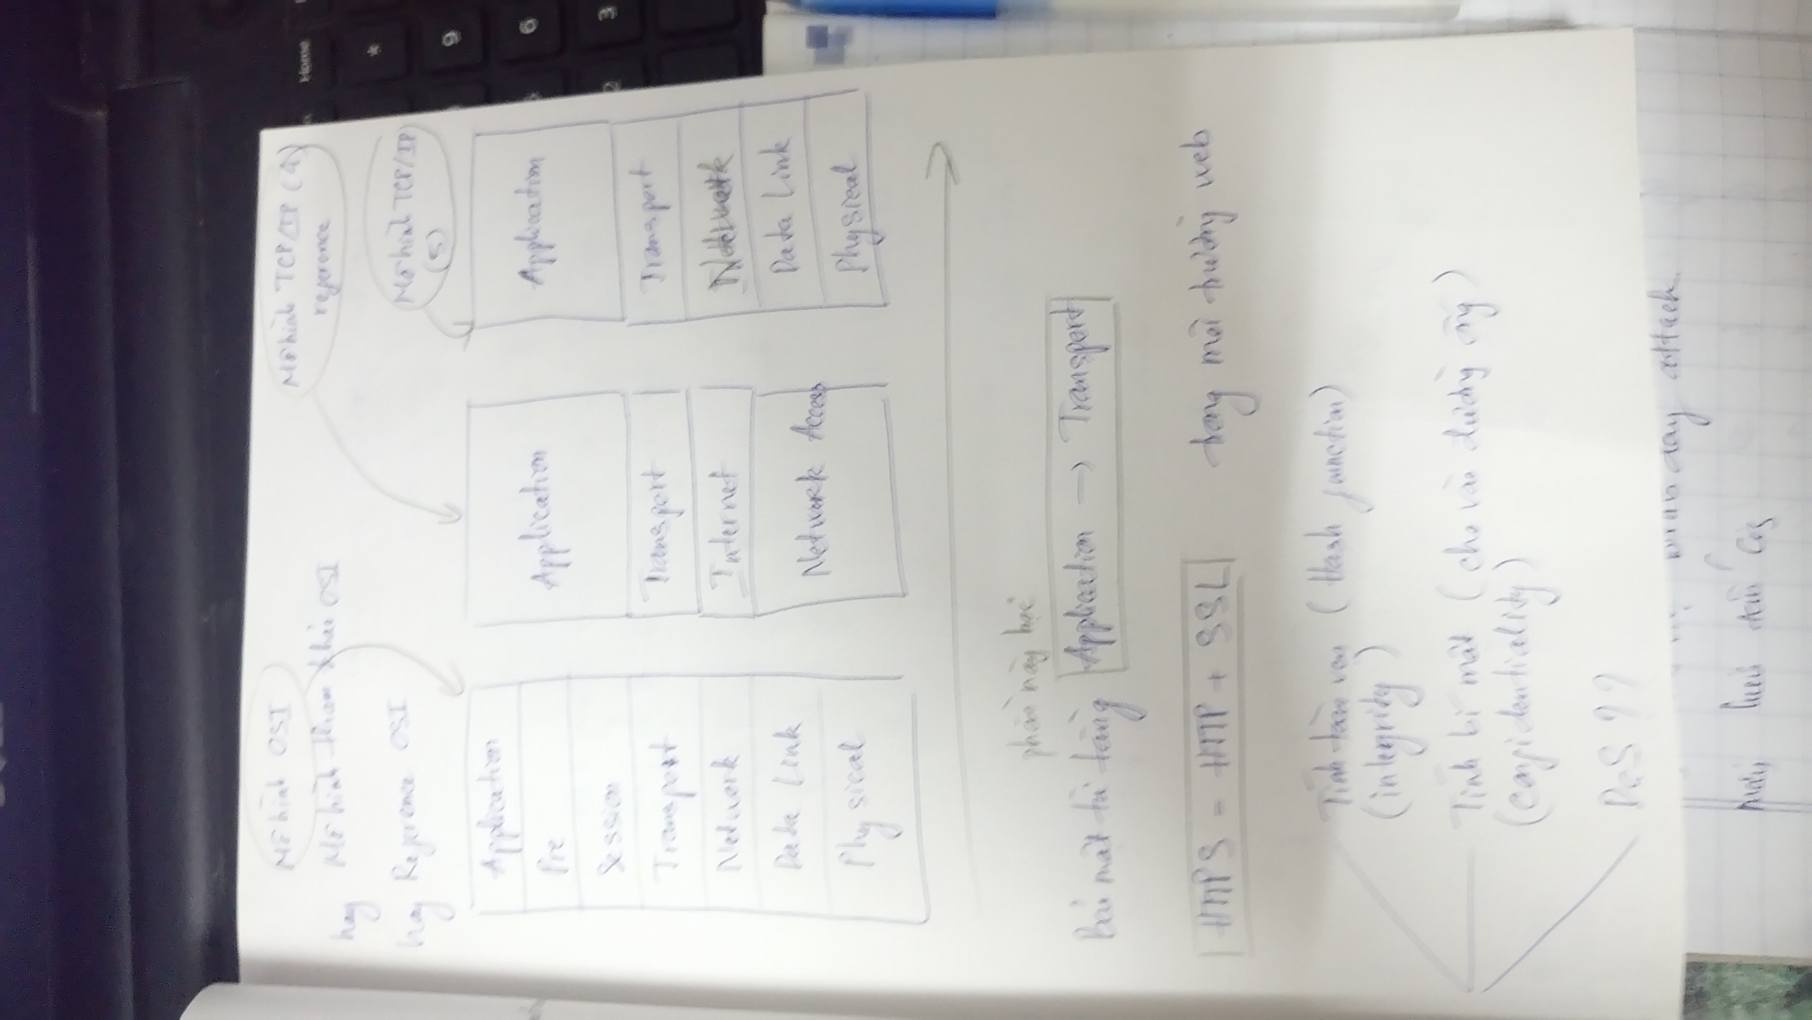 Mô hình OSI
hay Mô hình tham khảo OSI
hay Reference OSI
Mô hình TCP/IP (4)
reference
Mô hình TCP/IP
(5)
Application
Pre
Session
Transport
Network
Data Link
Physical
Application
Transport
Internet
Network Access
Application
Transport
Network
Data Link
Physical
phần này học
Bảo mật từ tầng Application → Transport
HTTPS = HTTP + SSL trong môi trường web
Tính toàn vẹn (Hash function)
(integrity)
Tính bí mật (cho vào đường ống)
(confidentiality)
DoS ??
day attack
Home
*
9
6
2
3